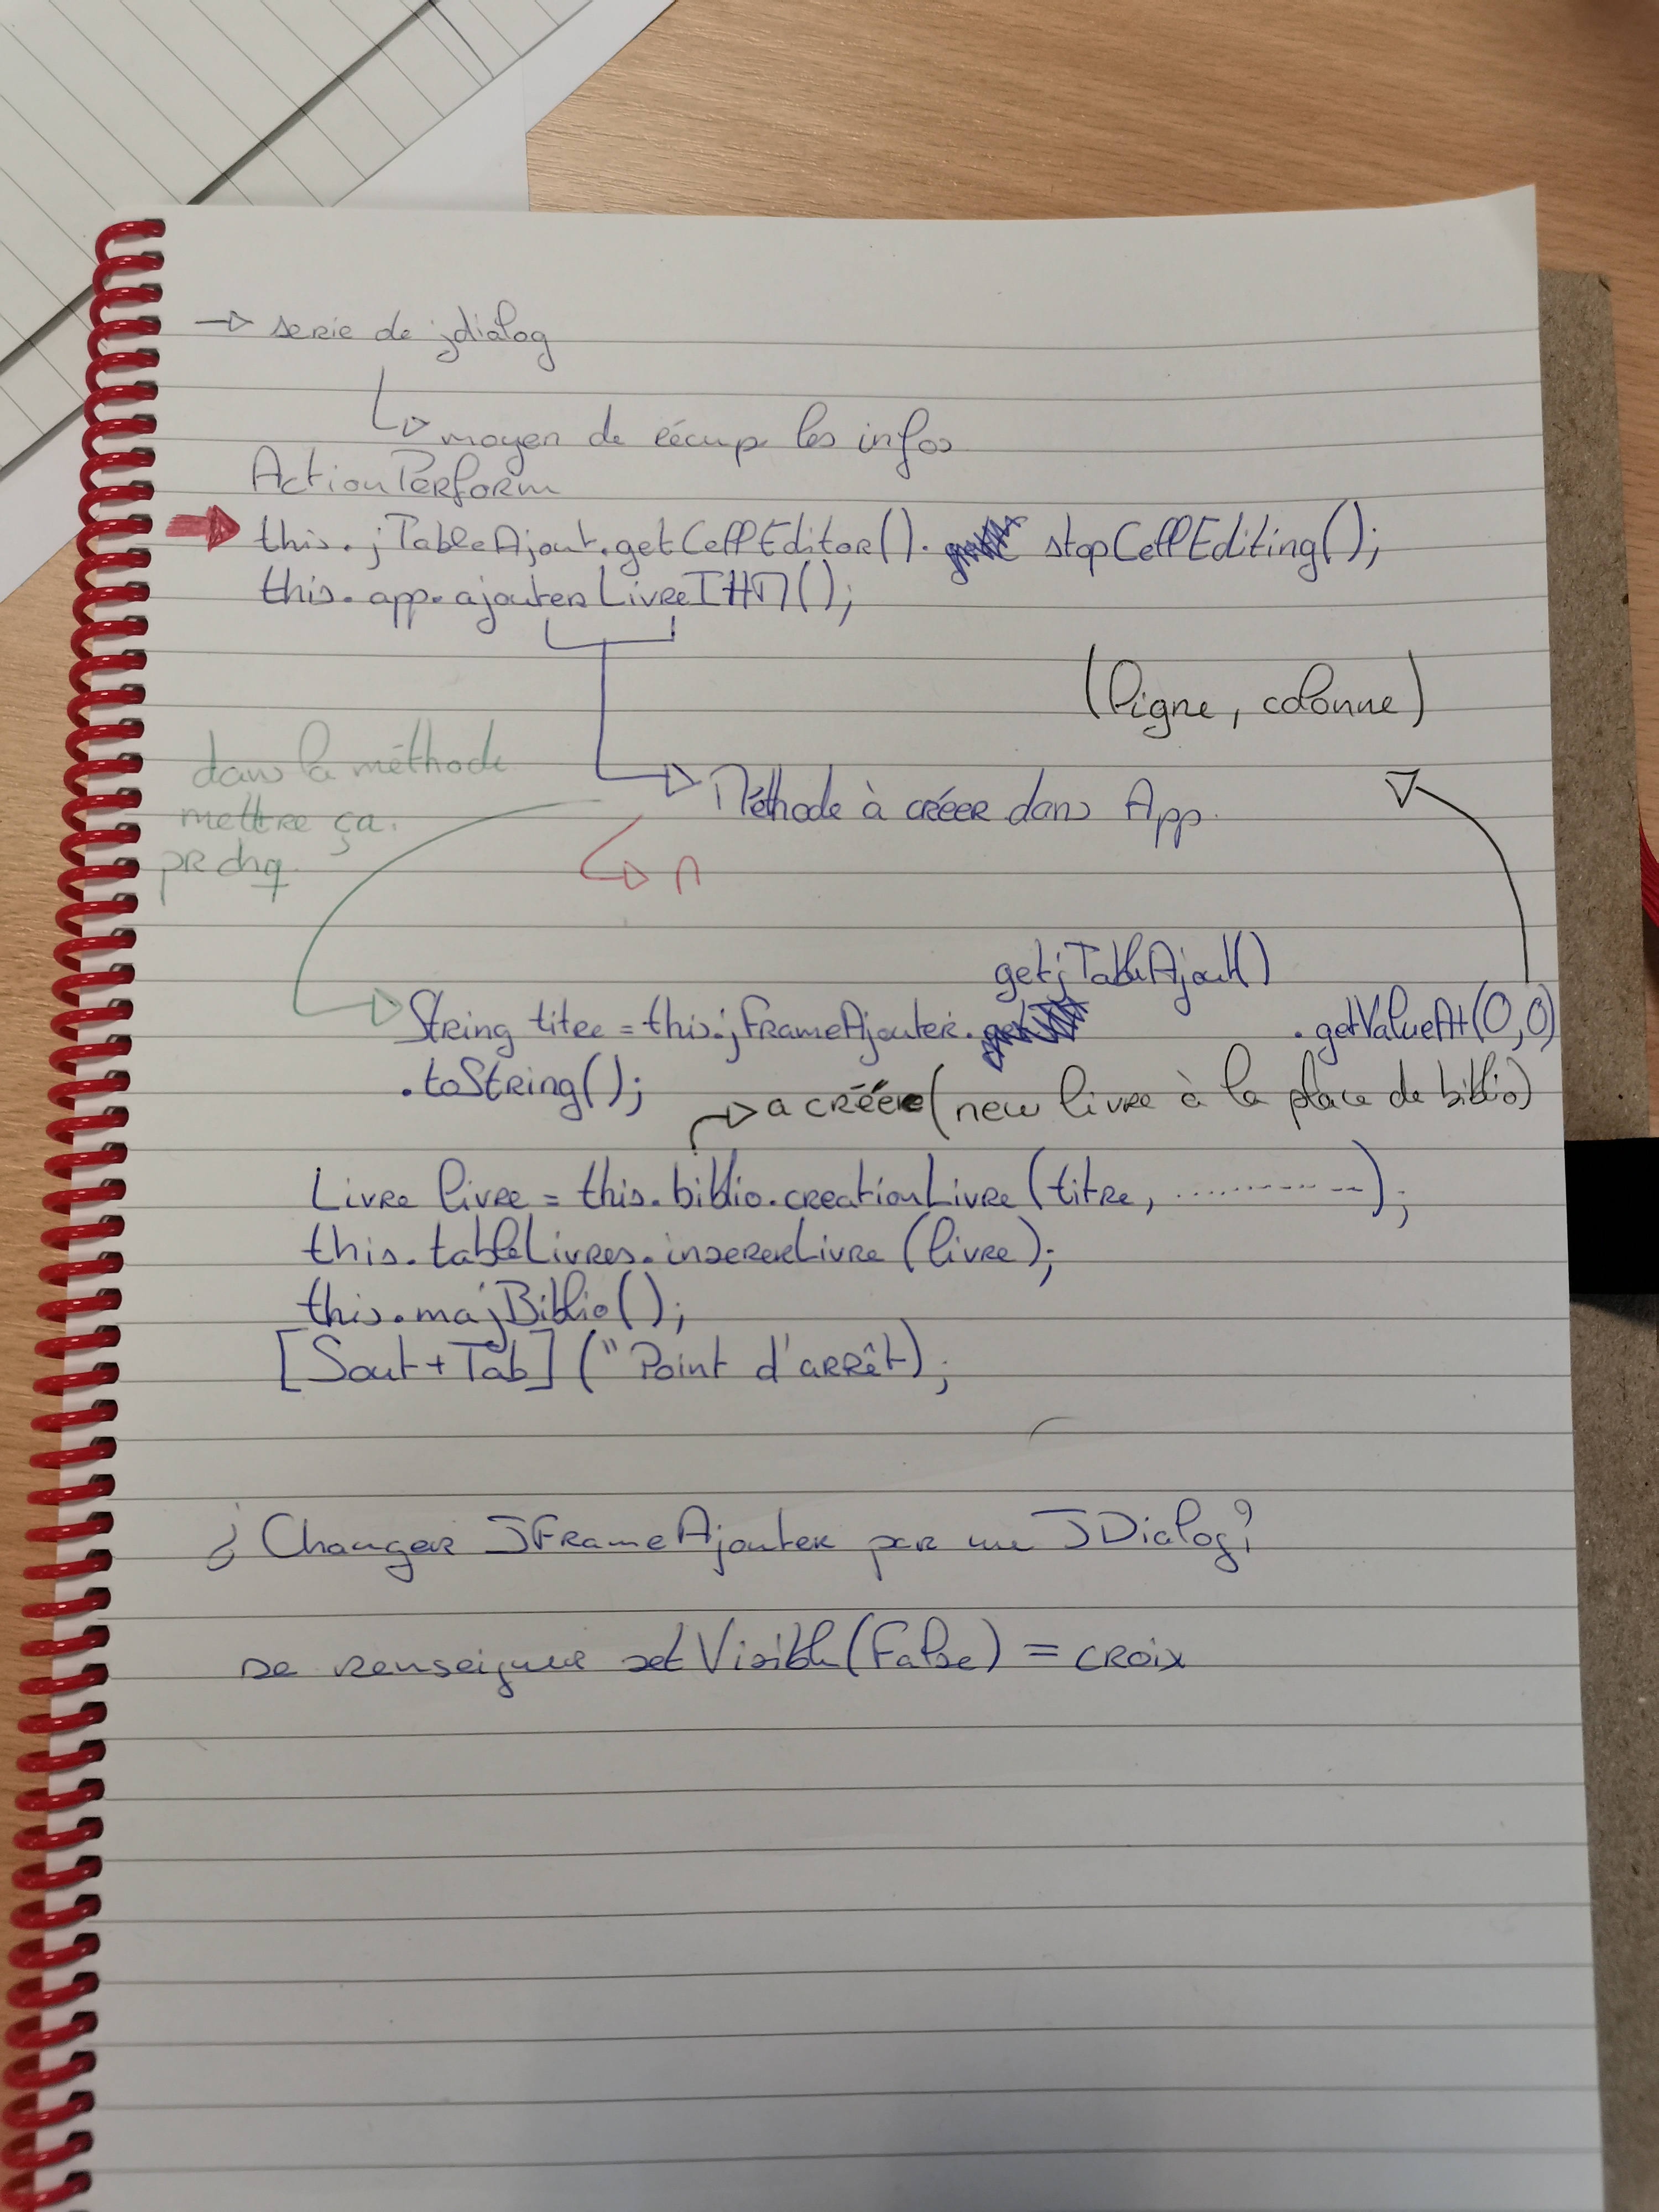 → serie de jdialog
↳ moyen de récup les infos
ActionPerform
this.jTableAjout.getCellEditor(). stopCellEditing();
this.app.ajouterLivreIHM();
(ligne, colonne)
dans la méthode
mettre ça.
pr chq.
Méthode à créer dans App.
getjTableAjout()
String titre = this.jFrameAjouter. .getValueAt(0,0)
.toString();
→ a créer (new livre à la place de biblio)
Livre livre = this.biblio.creationLivre(titre, ..............);
this.tableLivres.insererLivre(livre);
this.majBiblio();
[Sout+Tab] ("Point d'arrêt);
¿ Changer JFrameAjouter par un JDialog?
se renseigner setVisible(False) = croix